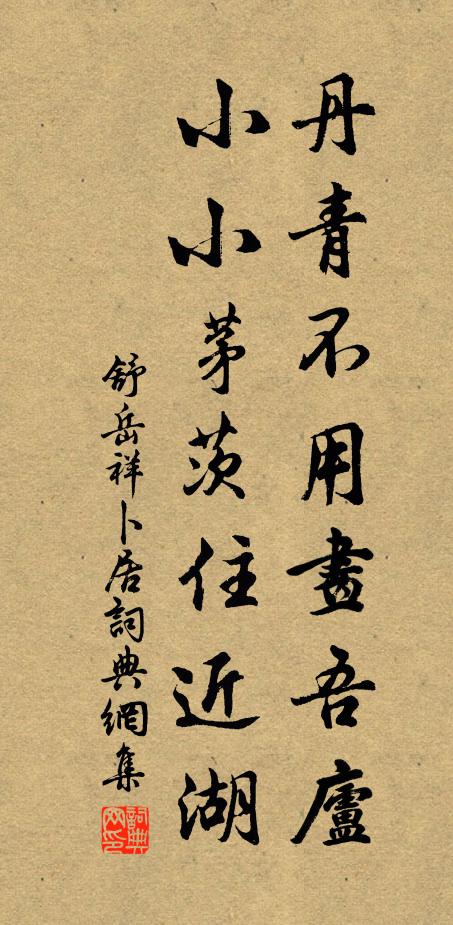 丹青不用畫吾廬
小小茅茨住近湖
舒岳祥卜居詞典網集
詞典网印